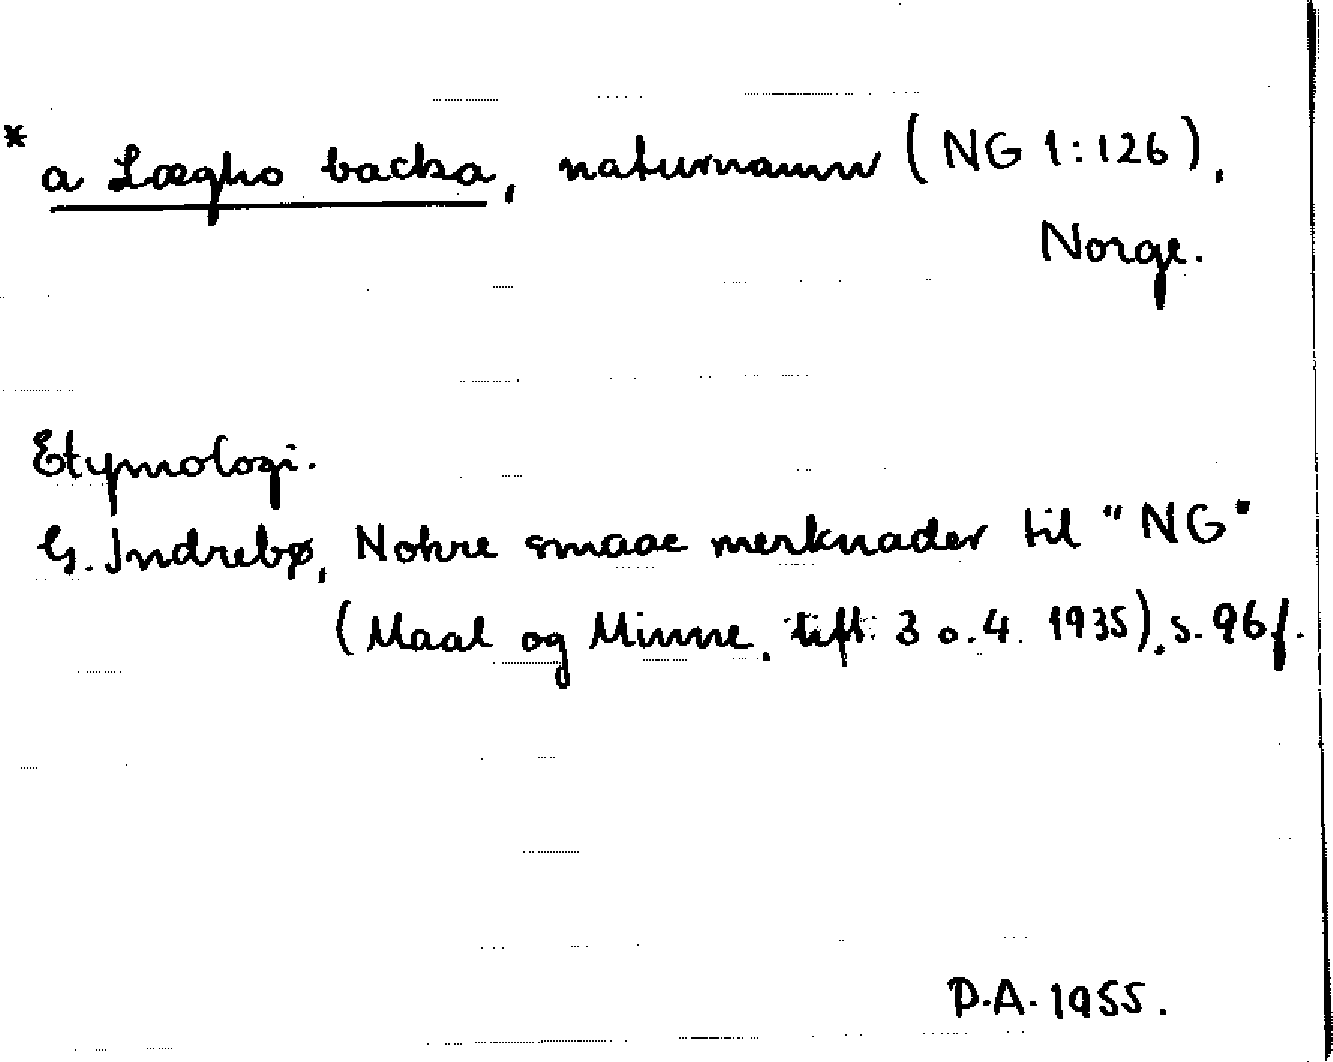 * a Lægho backa, naturnamn (NG 1:126),
Norge.
Etymologi.
G. Indrebø, Nokre smaae merknader til "NG"
(Maal og Minne. 3 o. 4. 1935), s. 96 f.
P.A. 1955.